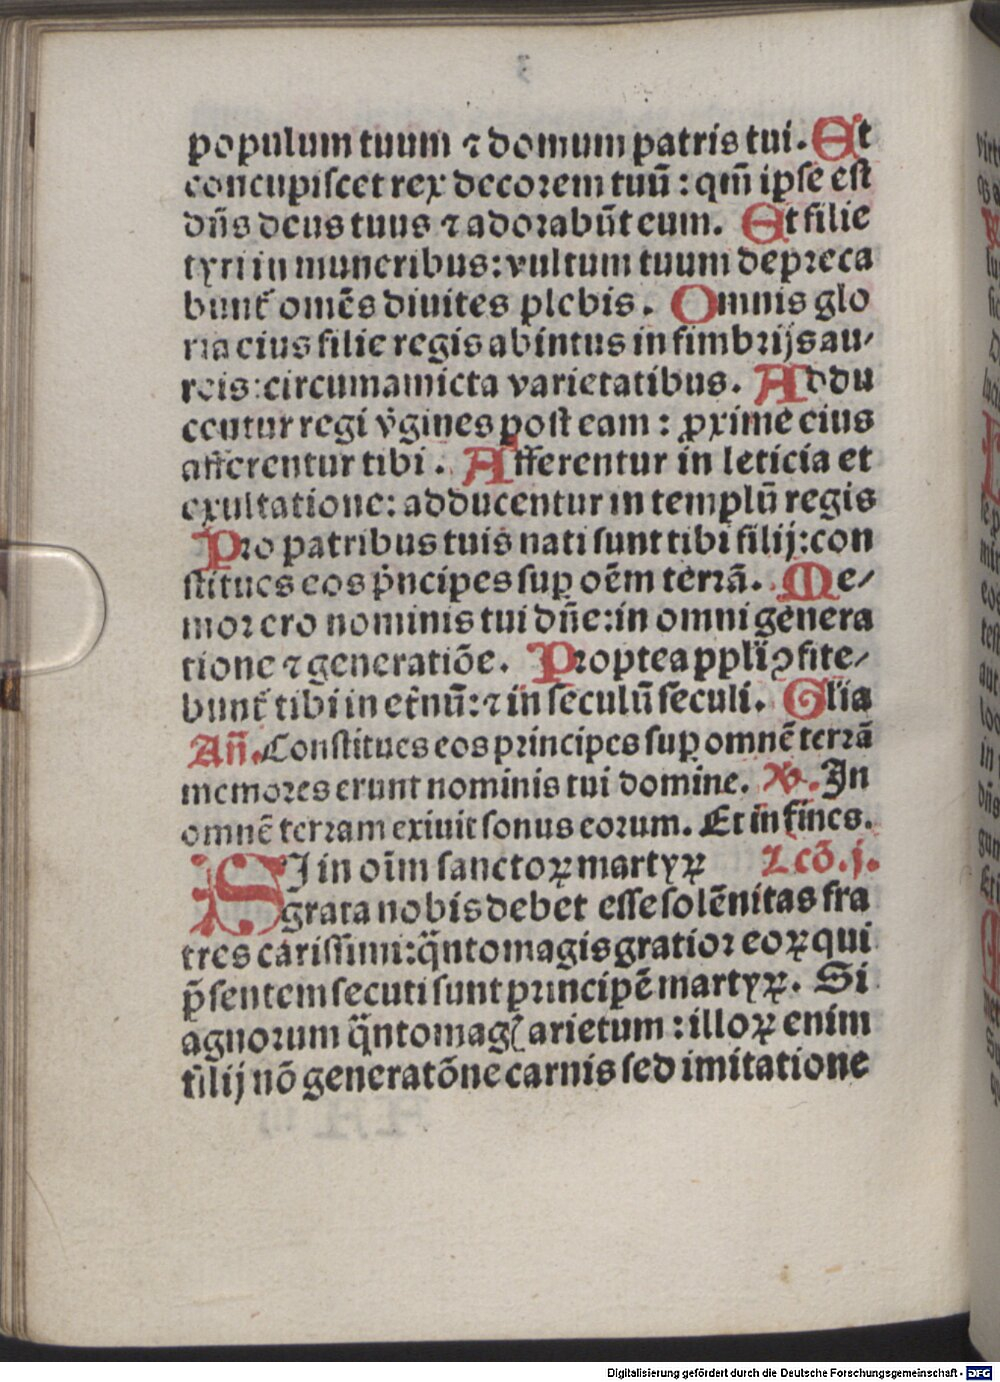 populum tuum ⁊ domum patris tui. Et
concupiscet rex decorem tuū : qm̄ ipse est
dn̄s deus tuus ⁊ adorabūt eum. Et filie
tyri in muneribus: vultum tuum depreca
bunt᷑ omēs diuites plebis. Omnis glo
ria eius filie regis ab intus in fimbrijs au/
reis: circumamicta varietatibus. Addu
centur regi v̓gines post eam : ꝓxime eius
afferentur tibi. Afferentur in leticia et
exultatione: adducentur in templū regis
Pro patribus tuis nati sunt tibi filij: con
stitues eos pͥncipes suꝑ oēm terrā. Me/
mor ero nominis tui dn̄e: in omni genera
tione ⁊ generatiōe. Propterea ppl̄i ꝯfite/
bunt᷑ tibi in et̓nū: ⁊ in seculū seculi. Gl̄ia
An̄. Constitues eos principes suꝑ omnē terrā
memores erunt nominis tui domine. ℣. In
omnē terram exiuit sonus eorum. Et in fines.
SI in oīm sanctoꝝ martyꝝ Lcō. j.
grata nobis debet esse solēnitas fra
tres carissimi: q̈ntomagis gratior eoꝝ qui
p̄sentem secuti sunt principē martyꝝ. Si
agnorum q̈ntomagꝭ arietum : illoꝝ enim
filij nō generatōne carnis sed imitatione
Digitalisierung gefördert durch die Deutsche Forschungsgemeinschaft - DFG